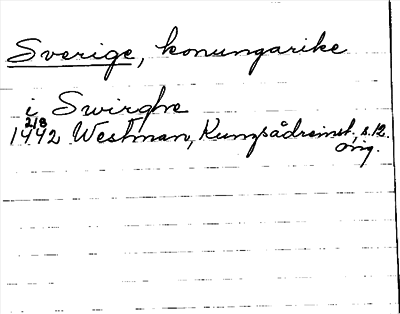 Sverige, konungarike
i Swirghe
21/8
1442 Westman, Kungsådreinst., s. 12.
orig.